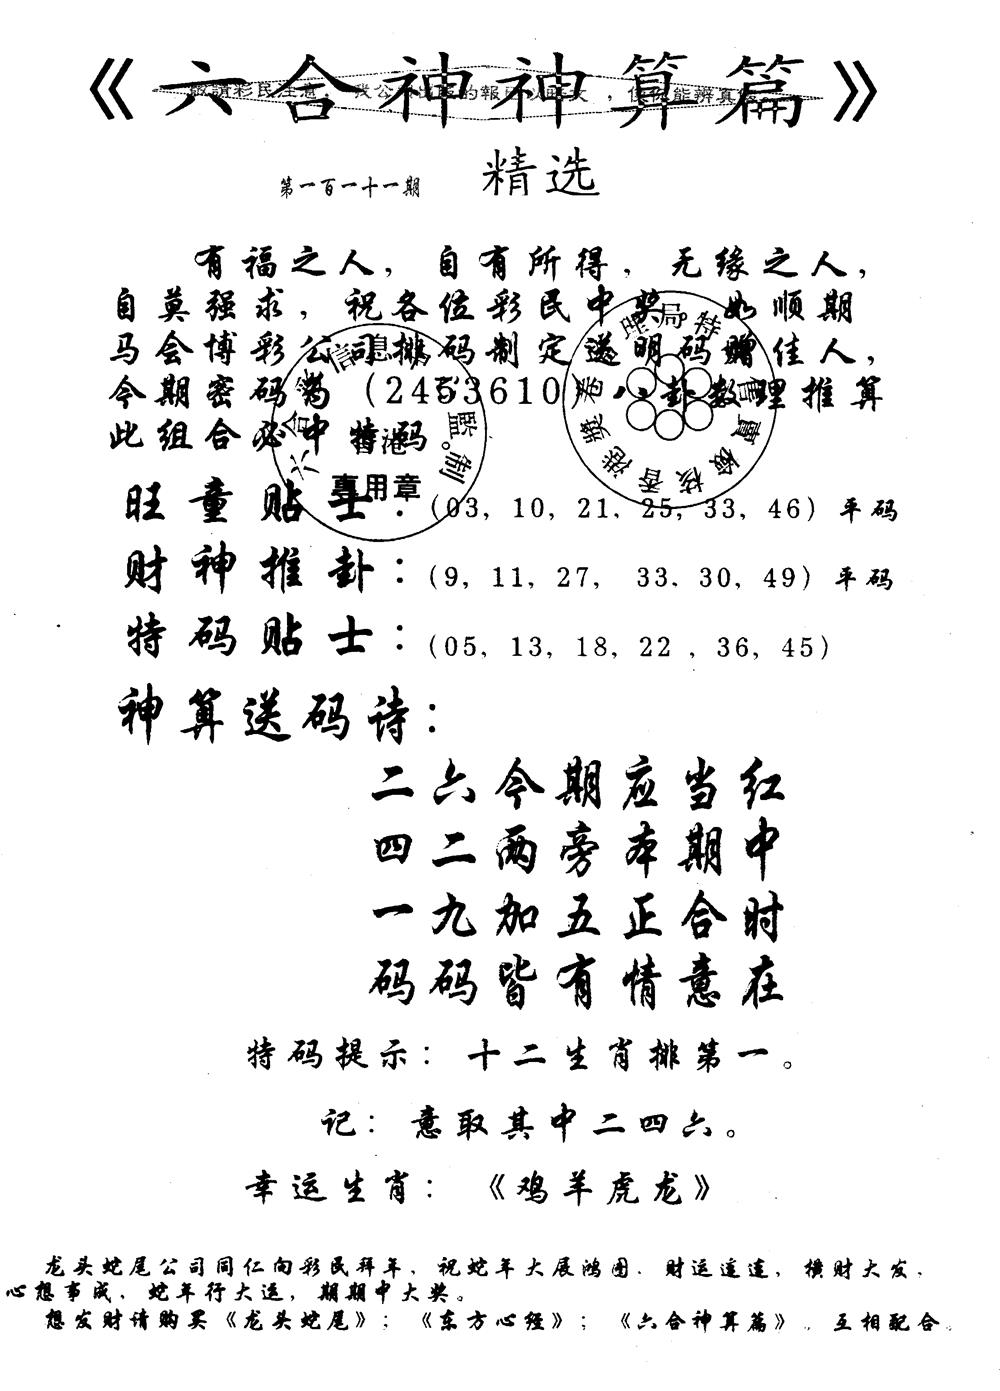 《六合神神算篇》
敬請彩民注意
精选
第一百一十一期
有福之人，自有所得，无缘之人，
自莫强求，祝各位彩民中奖 如顺期
马会博彩公司排码制定送明码赠佳人，
今期密码为（2453610 八卦数理推算
此组合必中特码
香港
專用章
監制
旺童贴士：(03, 10, 21, 25, 33, 46) 平码
财神推卦：(9, 11, 27, 33. 30, 49) 平码
特码贴士：(05, 13, 18, 22 , 36, 45)
神算送码诗：
二六今期应当红
四二两旁本期中
一九加五正合时
码码皆有情意在
特码提示：十二生肖排第一。
记：意取其中二四六。
幸运生肖：《鸡羊虎龙》
龙头蛇尾公司同仁向彩民拜年，祝蛇年大展鸿图．财运连连，横财大发．
心想事成．蛇年行大运，期期中大奖。
想发财请购买《龙头蛇尾》；《东方心经》；《六合神算篇》．互相配合．